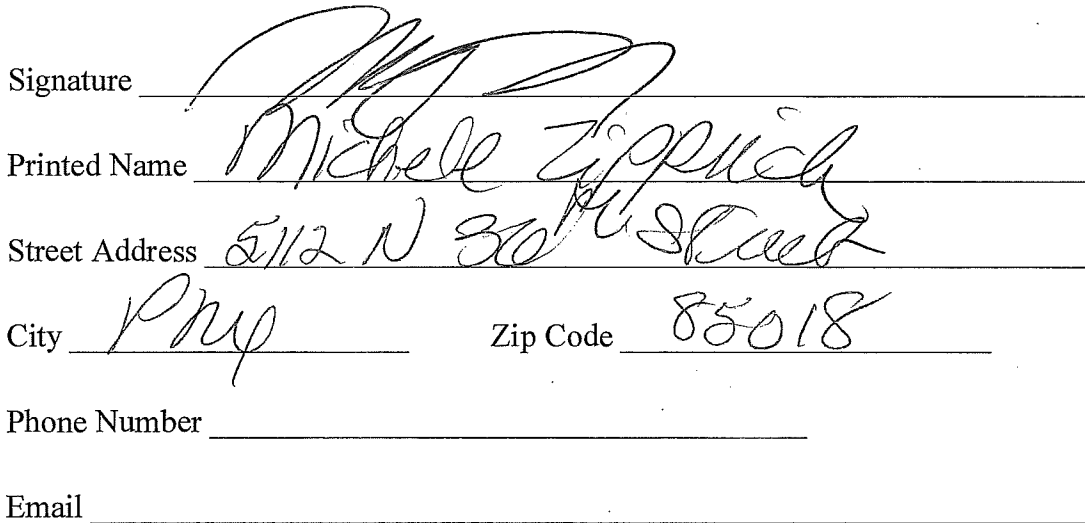 Signature
Printed Name Michele Zipprich
Street Address 5112 N 36th Street
City Phx Zip Code 85018
Phone Number
Email